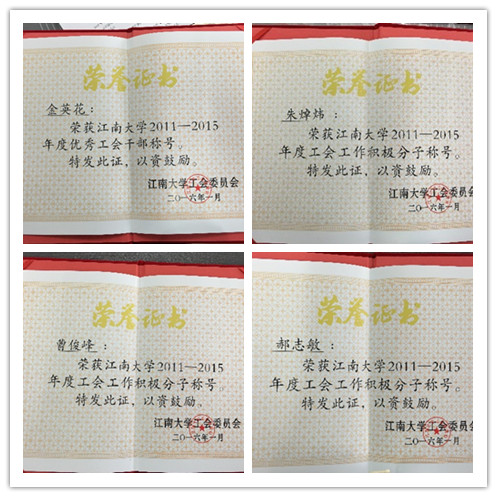 荣誉证书
金英花：
荣获江南大学2011—2015
年度优秀工会干部称号。
特发此证，以资鼓励。
江南大学工会委员会
二〇一六年一月
荣誉证书
朱焯炜：
荣获江南大学2011—2015
年度工会工作积极分子称号。
特发此证，以资鼓励。
江南大学工会委员会
二〇一六年一月
荣誉证书
曾俊峰：
荣获江南大学2011—2015
年度工会工作积极分子称号。
特发此证，以资鼓励。
江南大学工会委员会
二〇一六年一月
荣誉证书
郝志敏：
荣获江南大学2011—2015
年度工会工作积极分子称号。
特发此证，以资鼓励。
江南大学工会委员会
二〇一六年一月